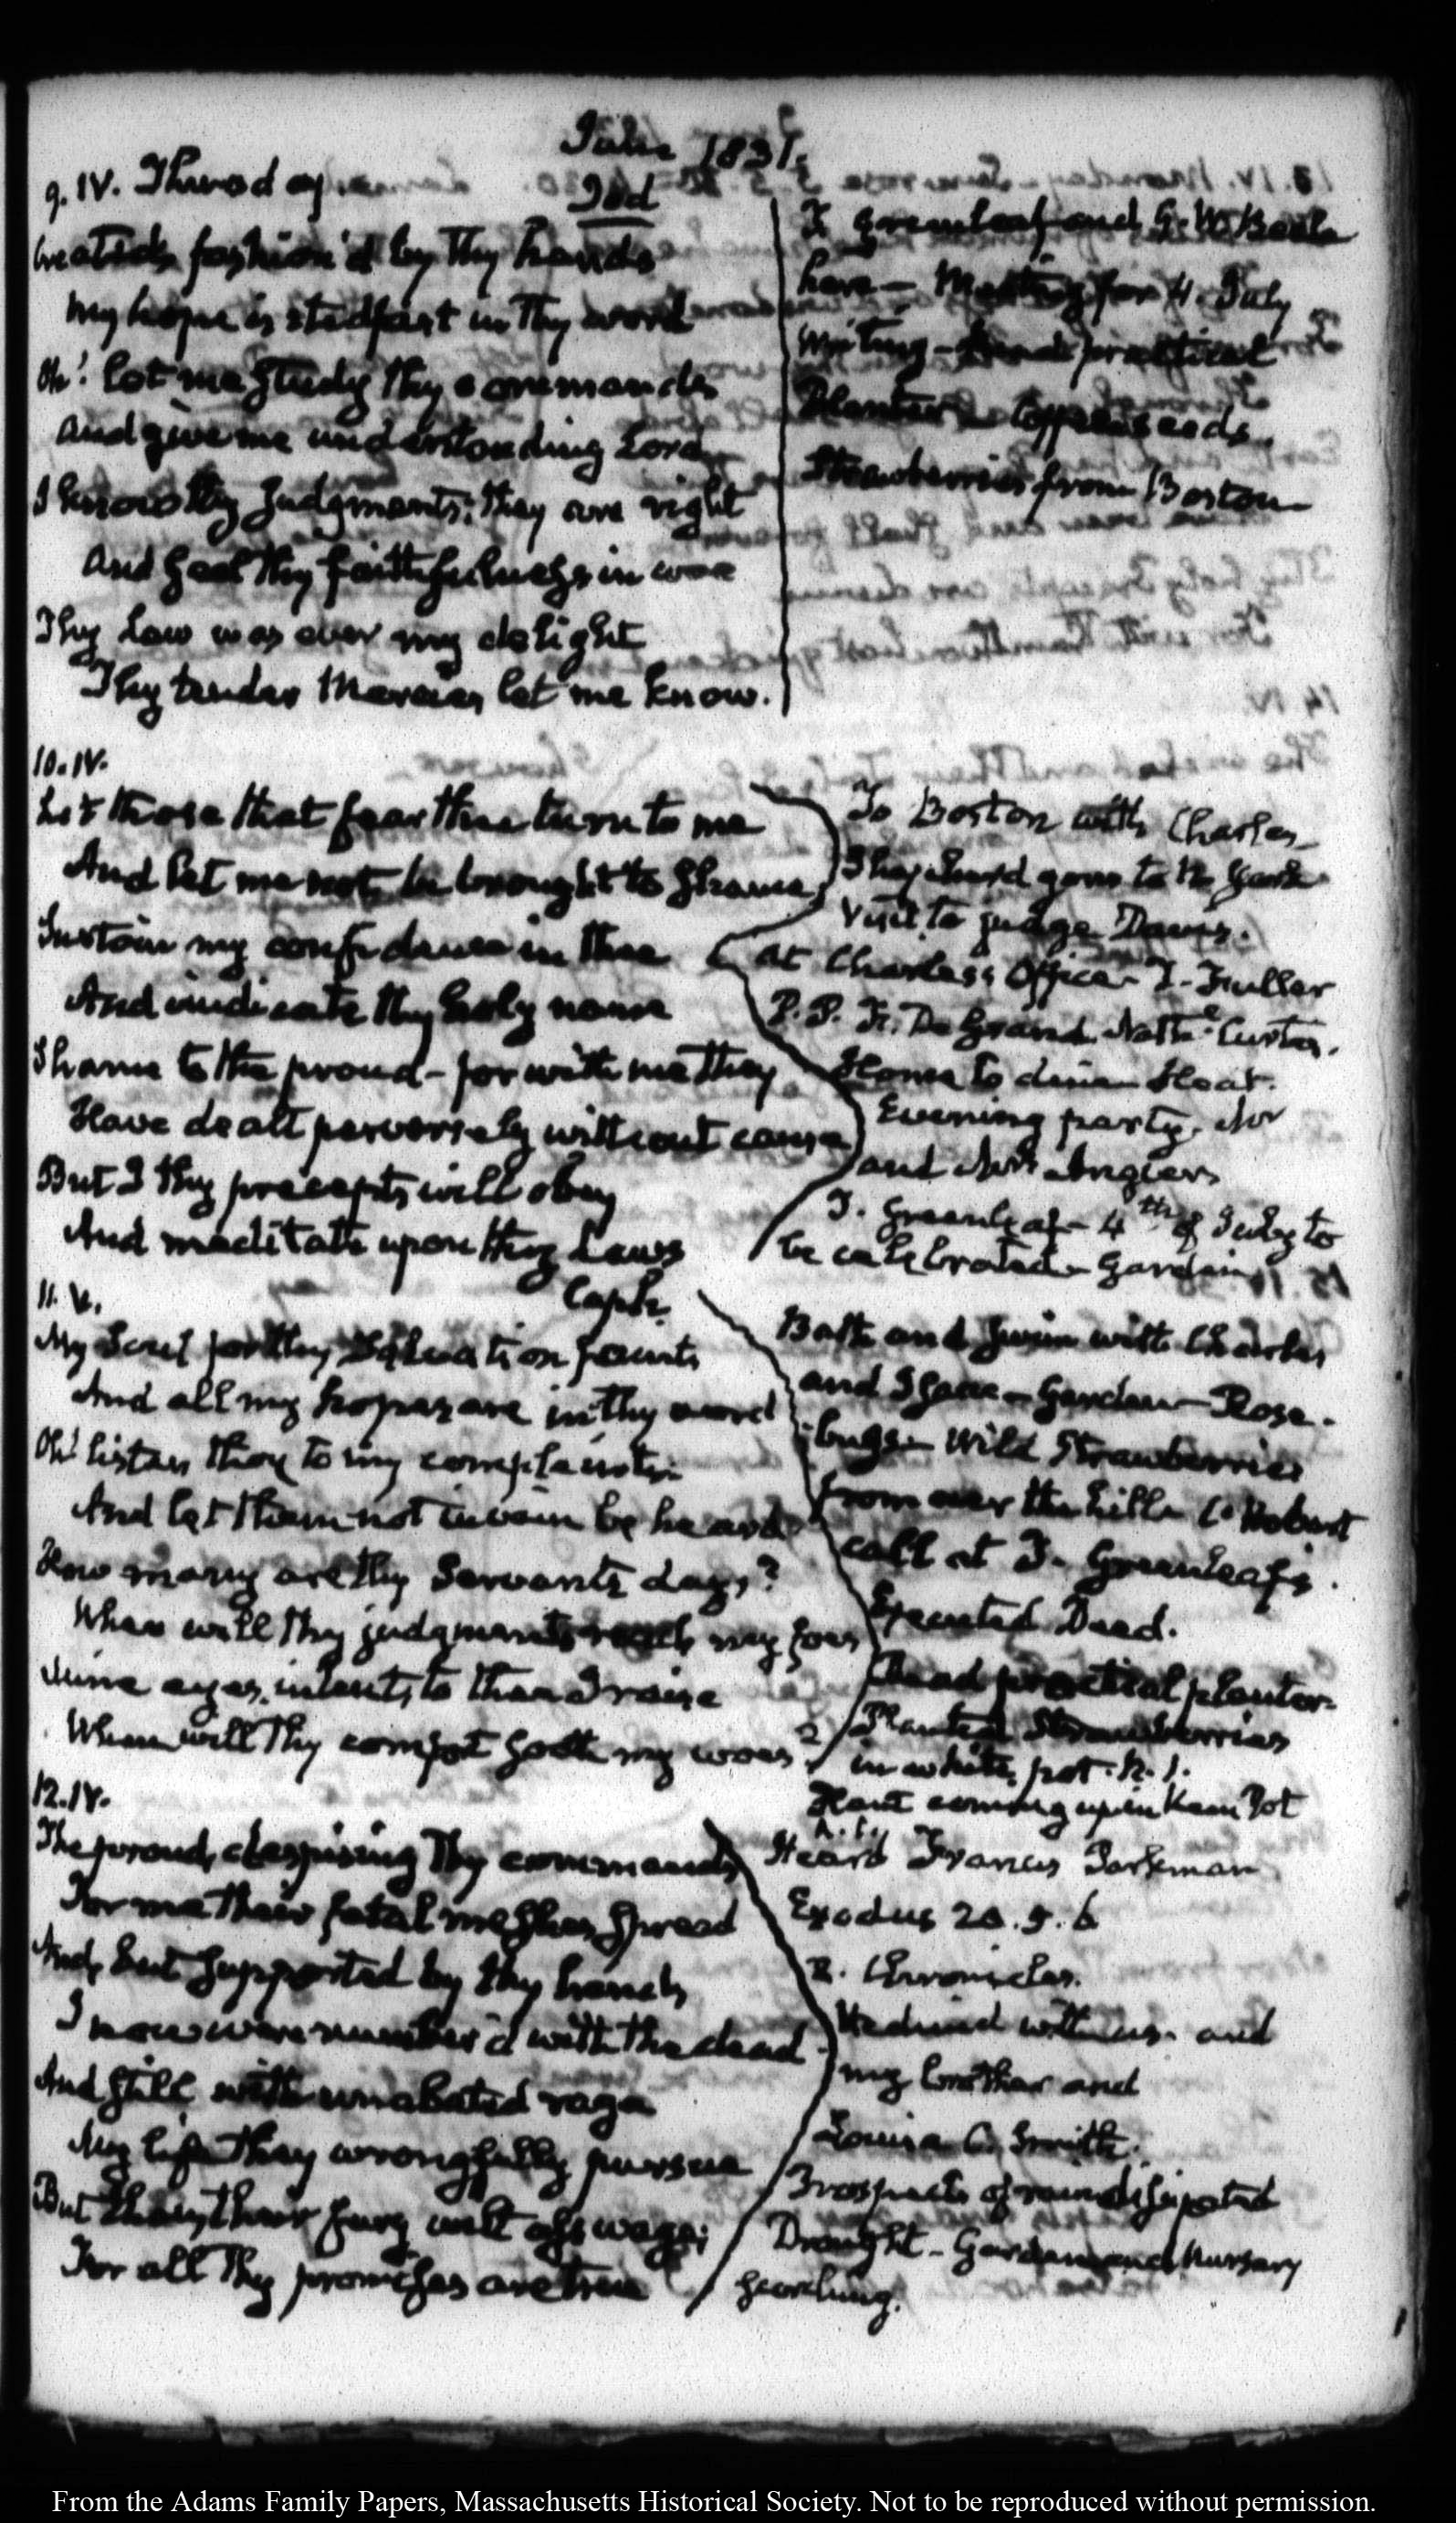 June 1831.
9. IV. Thursday.
Jod
Created, fashion'd by Thy hands
My hope is stedfast in Thy word
Oh! let me Study thy commands
And give me understanding Lord
I know thy Judgments; they are right
And feel thy faithfulness in woe
Thy Law was ever my delight
Thy tender Mercies let me know.
T Greenleaf and G. W. Beale
here — Meeting for 4. July
Writing — Read practical
Planter
Strawberries from Boston
10. IV.
Let those that fear thee turn to me
And let me not be brought to Shame
Sustain my confidence in thee
And vindicate thy holy name
Shame to the proud — for with me they
Have dealt perversely without cause
But I thy precepts will obey
And meditate upon thy Laws
To Boston with Charles
Shepherd gone to N. York
Visit to judge Davis.
At Charles's Office — T. Fuller
P. P. F. DeGrand Nath.l Curtis.
Home to dine Heat.
Evening party. Mr
and Mrs Angier
T. Greenleaf — 4th of July to
be celebrated — Garden
11. V.
Caph.
My Soul for thy Salvation faints
And all my hopes are in thy word
Oh! listen thou to my complaints
And let them not in vain be heard
How many are thy Servants days?
When will thy judgments reach my foes
Mine eyes, intent, to thee I raise
When will Thy comfort sooth my woes?
Bath and Swim with Charles
and Isaac — Garden — Rose-
bugs — Wild Strawberries
from over the hill
call at T. Greenleaf's.
Executed Deed.
Read practical planter
Planted Strawberries
in white pot. N. 1.
Plant coming up in Pot
N. 1.
12. IV.
The proud, despising Thy commands
For me their fatal meshes Spread
And, but Supported by thy hands
I now were number'd with the dead
And Still with unabated rage
My life they wrongfully pursue
But thou their fury wilt asswage;
For all Thy promises are true
Heard Francis Parkman
Exodus 20. 5. 6
2. Chronicles.
He dined with us. and
my brother and
Louisa C. Smith.
Prospects of rain dissipated
Drought — Garden and Nursery
scorching.
From the Adams Family Papers, Massachusetts Historical Society. Not to be reproduced without permission.